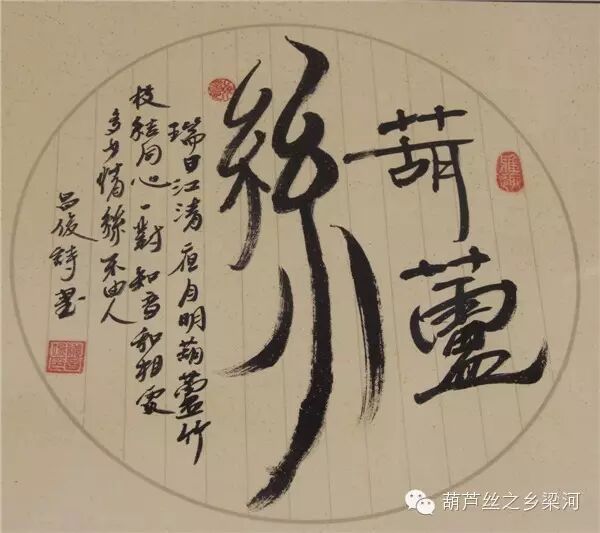 葫蘆
絲
瑞日江清夜月明葫蘆竹
枝結同心一對知音初相
多少情絲不由人
呂俊詩書
葫芦丝之乡梁河